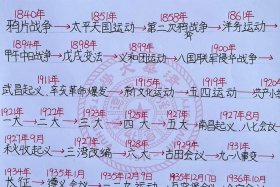 1840年 1851年 1858年 1861年
鸦片战争→太平天国运动→第二次鸦片战争→洋务运动→
1894年 1898年 1899年 1900年
甲午中日战争→戊戌变法→义和团运动→八国联军侵华战争→
1911年 1915年 1919年
武昌起义、辛亥革命爆发→新文化运动→五四运动→共产小
1921年 1922年 1923年 1925年 1927年 1927年8月
一大→二大→三大→四大→五大→南昌起义、八七会
1927年9月 1927年 1928年 1929年 1931年
秋收起义→三湾改编→六大→古田会议→九一八事变→
1934年 1935年1月 1935年12月 1935年12月 1936年
长征→遵义会议→一二九运动→瓦窑堡会议